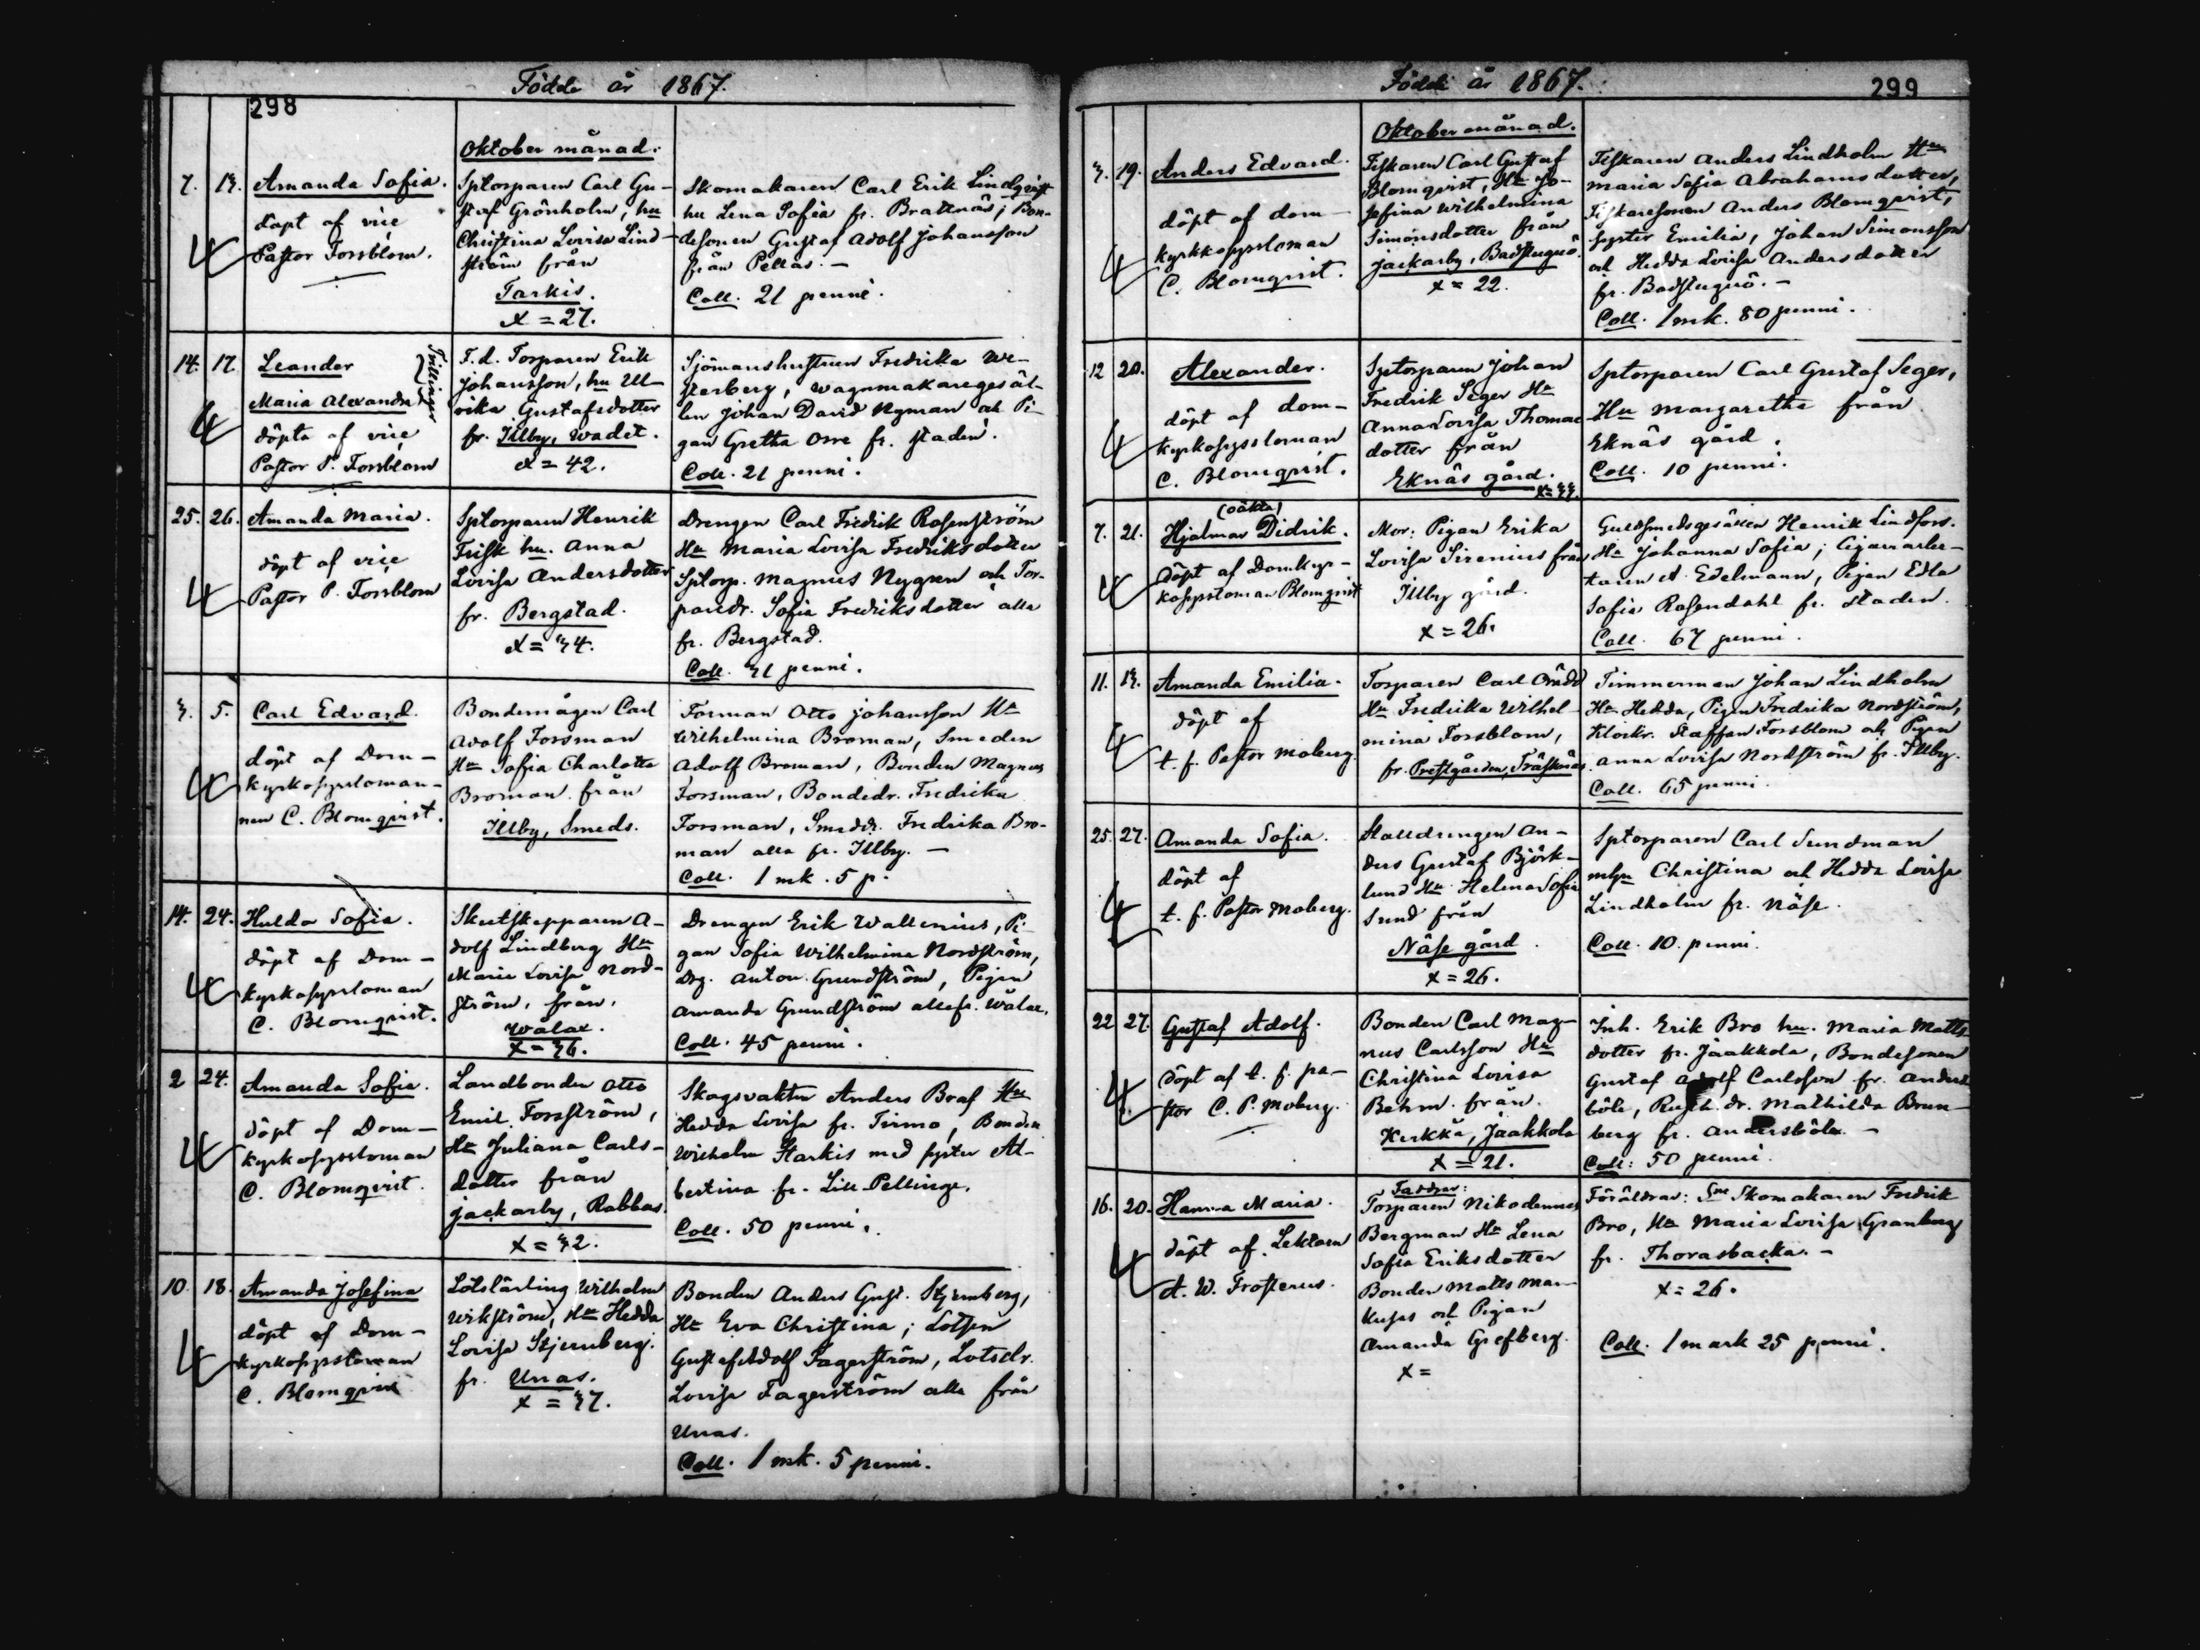 Födde år 1867.
298
Oktober månad.
7. 13. Amanda Sofia.
döpt af vice
Pastor Forsblom.
Sptorparen Carl Gu-
staf Grönholm, hu
Christina Lovisa Lind-
ström från
Tarkis.
x = 27.
Skomakaren Carl Erik Lindqvist
hu Lena Sofia fr. Brattnäs; Bon-
desonen Gustaf Adolf Johansson
från Pellas. -
Coll. 21 penni.
14. 17. Leander
Maria Alexandra
Tvillingar
döpta af vice
Pastor P. Forsblom
F.d. Torparen Erik
Johansson, hu Ul-
rika Gustafsdotter
fr. Illby, Wadet.
x = 42.
Sjömanshustrun Fredrika We-
sterberg, Wagnmakaregesäl-
len Johan David Nyman och Pi-
gan Gretha Orre fr. staden.
Coll. 21 penni.
25. 26. Amanda Maria.
döpt af vice
Pastor P. Forsblom
Sptorparen Henrik
Frisk hu. Anna
Lovisa Andersdotter
fr. Bergstad.
x = 34.
Drengen Carl Fredrik Rosenström
Hu Maria Lovisa Fredriksdotter
Sptorp. Magnus Nygren och Tor-
paredr. Sofia Fredriksdotter alla
fr. Bergstad.
Coll. 31 penni.
3. 5. Carl Edvard.
döpt af Dom-
kyrkosyssloman-
nen C. Blomqvist.
Bondemågen Carl
Adolf Forsman
Hu Sofia Charlotta
Broman från
Illby, Smeds.
Forman Otto Johansson Hu
Wilhelmina Broman, Smeden
Adolf Broman, Bonden Magnus
Forsman, Bondedr. Fredrika
Forsman, Smeddr. Fredrika Bro-
man alla fr. Illby. -
Coll. 1 mk. 5 p.
14. 24. Hulda Sofia.
döpt af Dom-
kyrkosyssloman
C. Blomqvist.
Skutskepparen A-
dolf Lindberg Hu
Maria Lovisa Nord-
ström, från,
Wålax.
x = 36.
Drengen Erik Wallenius, Pi-
gan Sofia Wilhelmina Nordström,
Drg. Anton Grundström, Pigan
Amanda Grundström alla fr. Wålax.
Coll. 45 penni.
2 24. Amanda Sofia.
döpt af Dom-
kyrkosyssloman
C. Blomqvist.
Landbonden Otto
Emil Forsström,
Hu Juliana Carls-
dotter från
Jackarby, Rabbas.
x = 32.
Skogsvakten Anders Boaf Hu
Hedda Lovisa fr. Tirmo, Bonden
Wilhelm Starkis med syster Al-
bertina fr. Lill Pellinge.
Coll. 50 penni.
10. 18. Amanda Josefina
döpt af Dom-
kyrkosyssloman
C. Blomqvist
Lotslärling Wilhelm
Wikström, Hu Hedda
Lovisa Stjernberg.
fr. Unas.
x = 37.
Bonden Anders Gust. Stjernberg,
Hu Eva Christina; Lotsen
Gustaf Adolf Fagerström, Lotsdr.
Lovisa Fagerström alla från
Unas.
Coll. 1 mk. 5 penni.
Födde år 1867.
299
Oktober månad.
3. 19. Anders Edvard.
döpt af dom-
kyrkosyssloman
C. Blomqvist.
Fiskaren Carl Gustaf
Blomqvist, Hu Jo-
sefina Wilhelmina
Simonsdotter från
Jackarby, Badstuguö.
x = 22.
Fiskaren Anders Lindholm Hu
Maria Sofia Abrahamsdotter,
Fiskaresonen Anders Blomqvist,
syster Emilia, Johan Simonsson
och Hedda Lovisa Andersdotter
fr. Badstuguö. -
Coll. 1 mk. 80 penni.
12 20. Alexander.
döpt af dom-
kyrkosyssloman
C. Blomqvist.
Sptorparen Johan
Fredrik Seger Hu
Anna Lovisa Thomae
dotter från
Eknäs gård.
x = 33.
Sptorparen Carl Gustaf Seger,
Hu Margaretha från
Eknäs gård.
Coll. 10 penni.
(oäkta)
7. 21. Hjalmar Didrik.
döpt af Domkyr-
kosyssloman Blomqvist
Mor: Pigan Erika
Lovisa Sirenius från
Illby gård.
x = 26.
Guldsmedsgesällen Henrik Lindfors.
Hu Johanna Sofia; Cigarrarbe-
taren A. Edelmann, Pigan Edla
Sofia Rosendahl fr. staden.
Coll. 67 penni.
11. 13. Amanda Emilia.
döpt af
t. f. Pastor Moberg.
Torparen Carl
Hu Fredrika Wilhel-
mina Forsblom,
fr. Prestgården, Träsknäs.
Timmerman Johan Lindholm
Hu Hedda, Pigan Fredrika Nordström,
Klockr. Staffan Forsblom och Pigan
Anna Lovisa Nordström fr. Illby.
Coll. 65 penni.
25. 27. Amanda Sofia.
döpt af
t. f. Pastor Moberg.
Stalldrengen An-
ders Gustaf Björk-
lund Hu Helena Sofia
Sund från
Näse gård.
x = 26.
Sptorparen Carl Sundman
Christina och Hedda Lovisa
Lindholm fr. Näse.
Coll. 10. penni.
22 27. Gustaf Adolf.
döpt af t. f. pa-
stor C. P. Moberg.
Bonden Carl Mag-
nus Carlsson Hu
Christina Lovisa
Behm. från.
Kerkkä, Jaakkola
x = 21.
Inh. Erik Bro hu. Maria Matts
dotter fr. Jaakkola, Bondesonen
Gustaf Adolf Carlsson fr. Anders
böle, Rusth. dr. Mathilda Brun-
berg fr. Andersböle. -
Coll: 50 penni.
16. 20. Hanna Maria.
döpt af Lektorn
A. W. Frosterus.
Faddrar:
Torparen Nikodemus
Bergman Hu Lena
Sofia Eriksdotter
Bonden Matts Mar-
kusas och Pigan
Amanda Grefberg.
x =
Föräldrar: Skomakaren Fredrik
Bro, Hu Maria Lovisa Granberg
fr. Thorasbacka. -
x = 26.
Coll. 1 mark 25 penni.